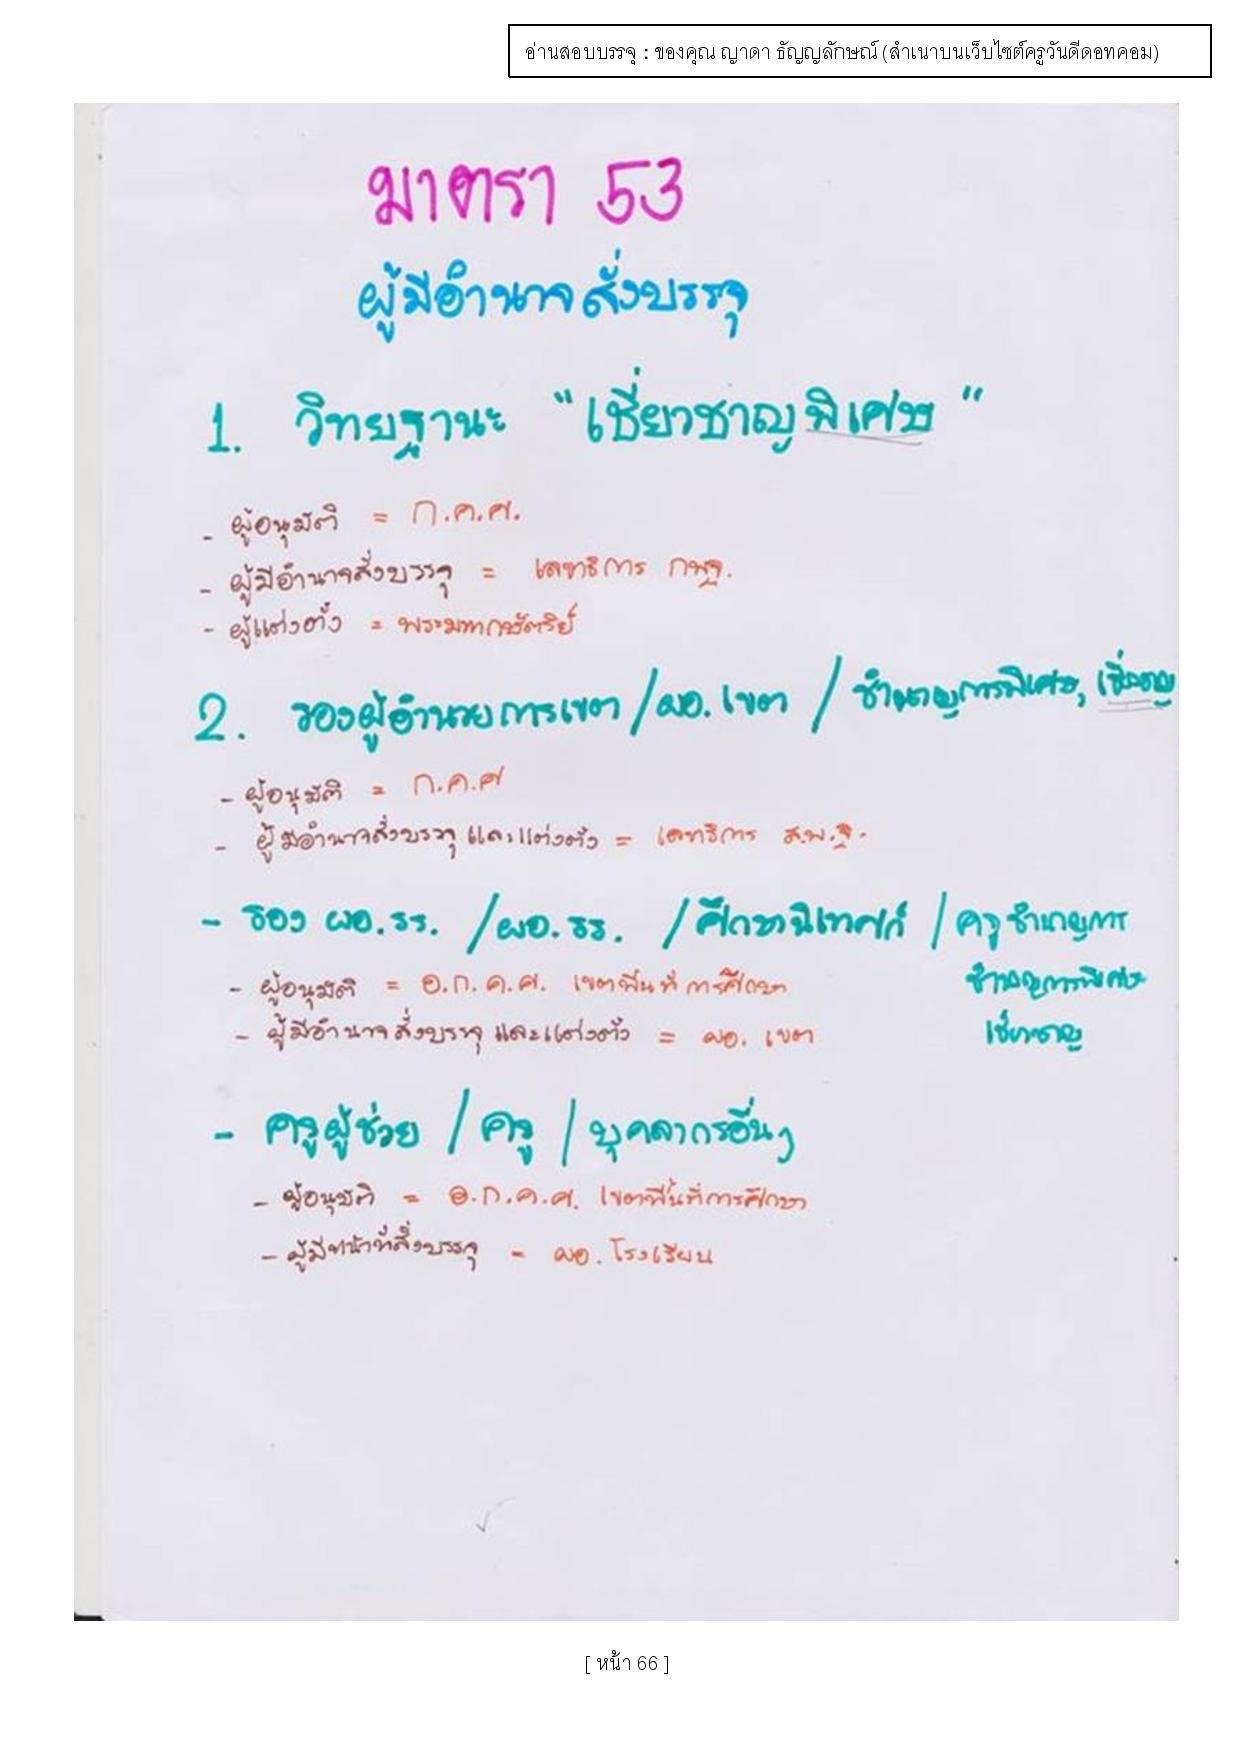 อ่านสอบบรรจุ : ของคุณ ญาดา ธัญญลักษณ์ (สำเนาบนเว็บไซต์ครูวันดีดอทคอม)
มาตรา 53
ผู้มีอำนาจสั่งบรรจุ
1. วิทยฐานะ "เชี่ยวชาญพิเศษ"
- ผู้อนุมัติ = ก.ค.ศ.
- ผู้มีอำนาจสั่งบรรจุ = เลขาธิการ กพฐ.
- ผู้แต่งตั้ง = พระมหากษัตริย์
2. รองผู้อำนวยการเขต / ผอ.เขต / ชำนาญการพิเศษ, เชี่ยวชาญ
- ผู้อนุมัติ = ก.ค.ศ
- ผู้มีอำนาจสั่งบรรจุ และแต่งตั้ง = เลขาธิการ ส.พ.ฐ.
- รอง ผอ.รร. / ผอ.รร. / ศึกษานิเทศก์ / ครูชำนาญการ
ชำนาญการพิเศษ
เชี่ยวชาญ
- ผู้อนุมัติ = อ.ก.ค.ศ. เขตพื้นที่การศึกษา
- ผู้มีอำนาจสั่งบรรจุ และแต่งตั้ง = ผอ. เขต
- ครูผู้ช่วย / ครู / บุคลากรอื่นๆ
- ผู้อนุมัติ = อ.ก.ค.ศ. เขตพื้นที่การศึกษา
- ผู้มีหน้าที่สั่งบรรจุ = ผอ. โรงเรียน
[ หน้า 66 ]